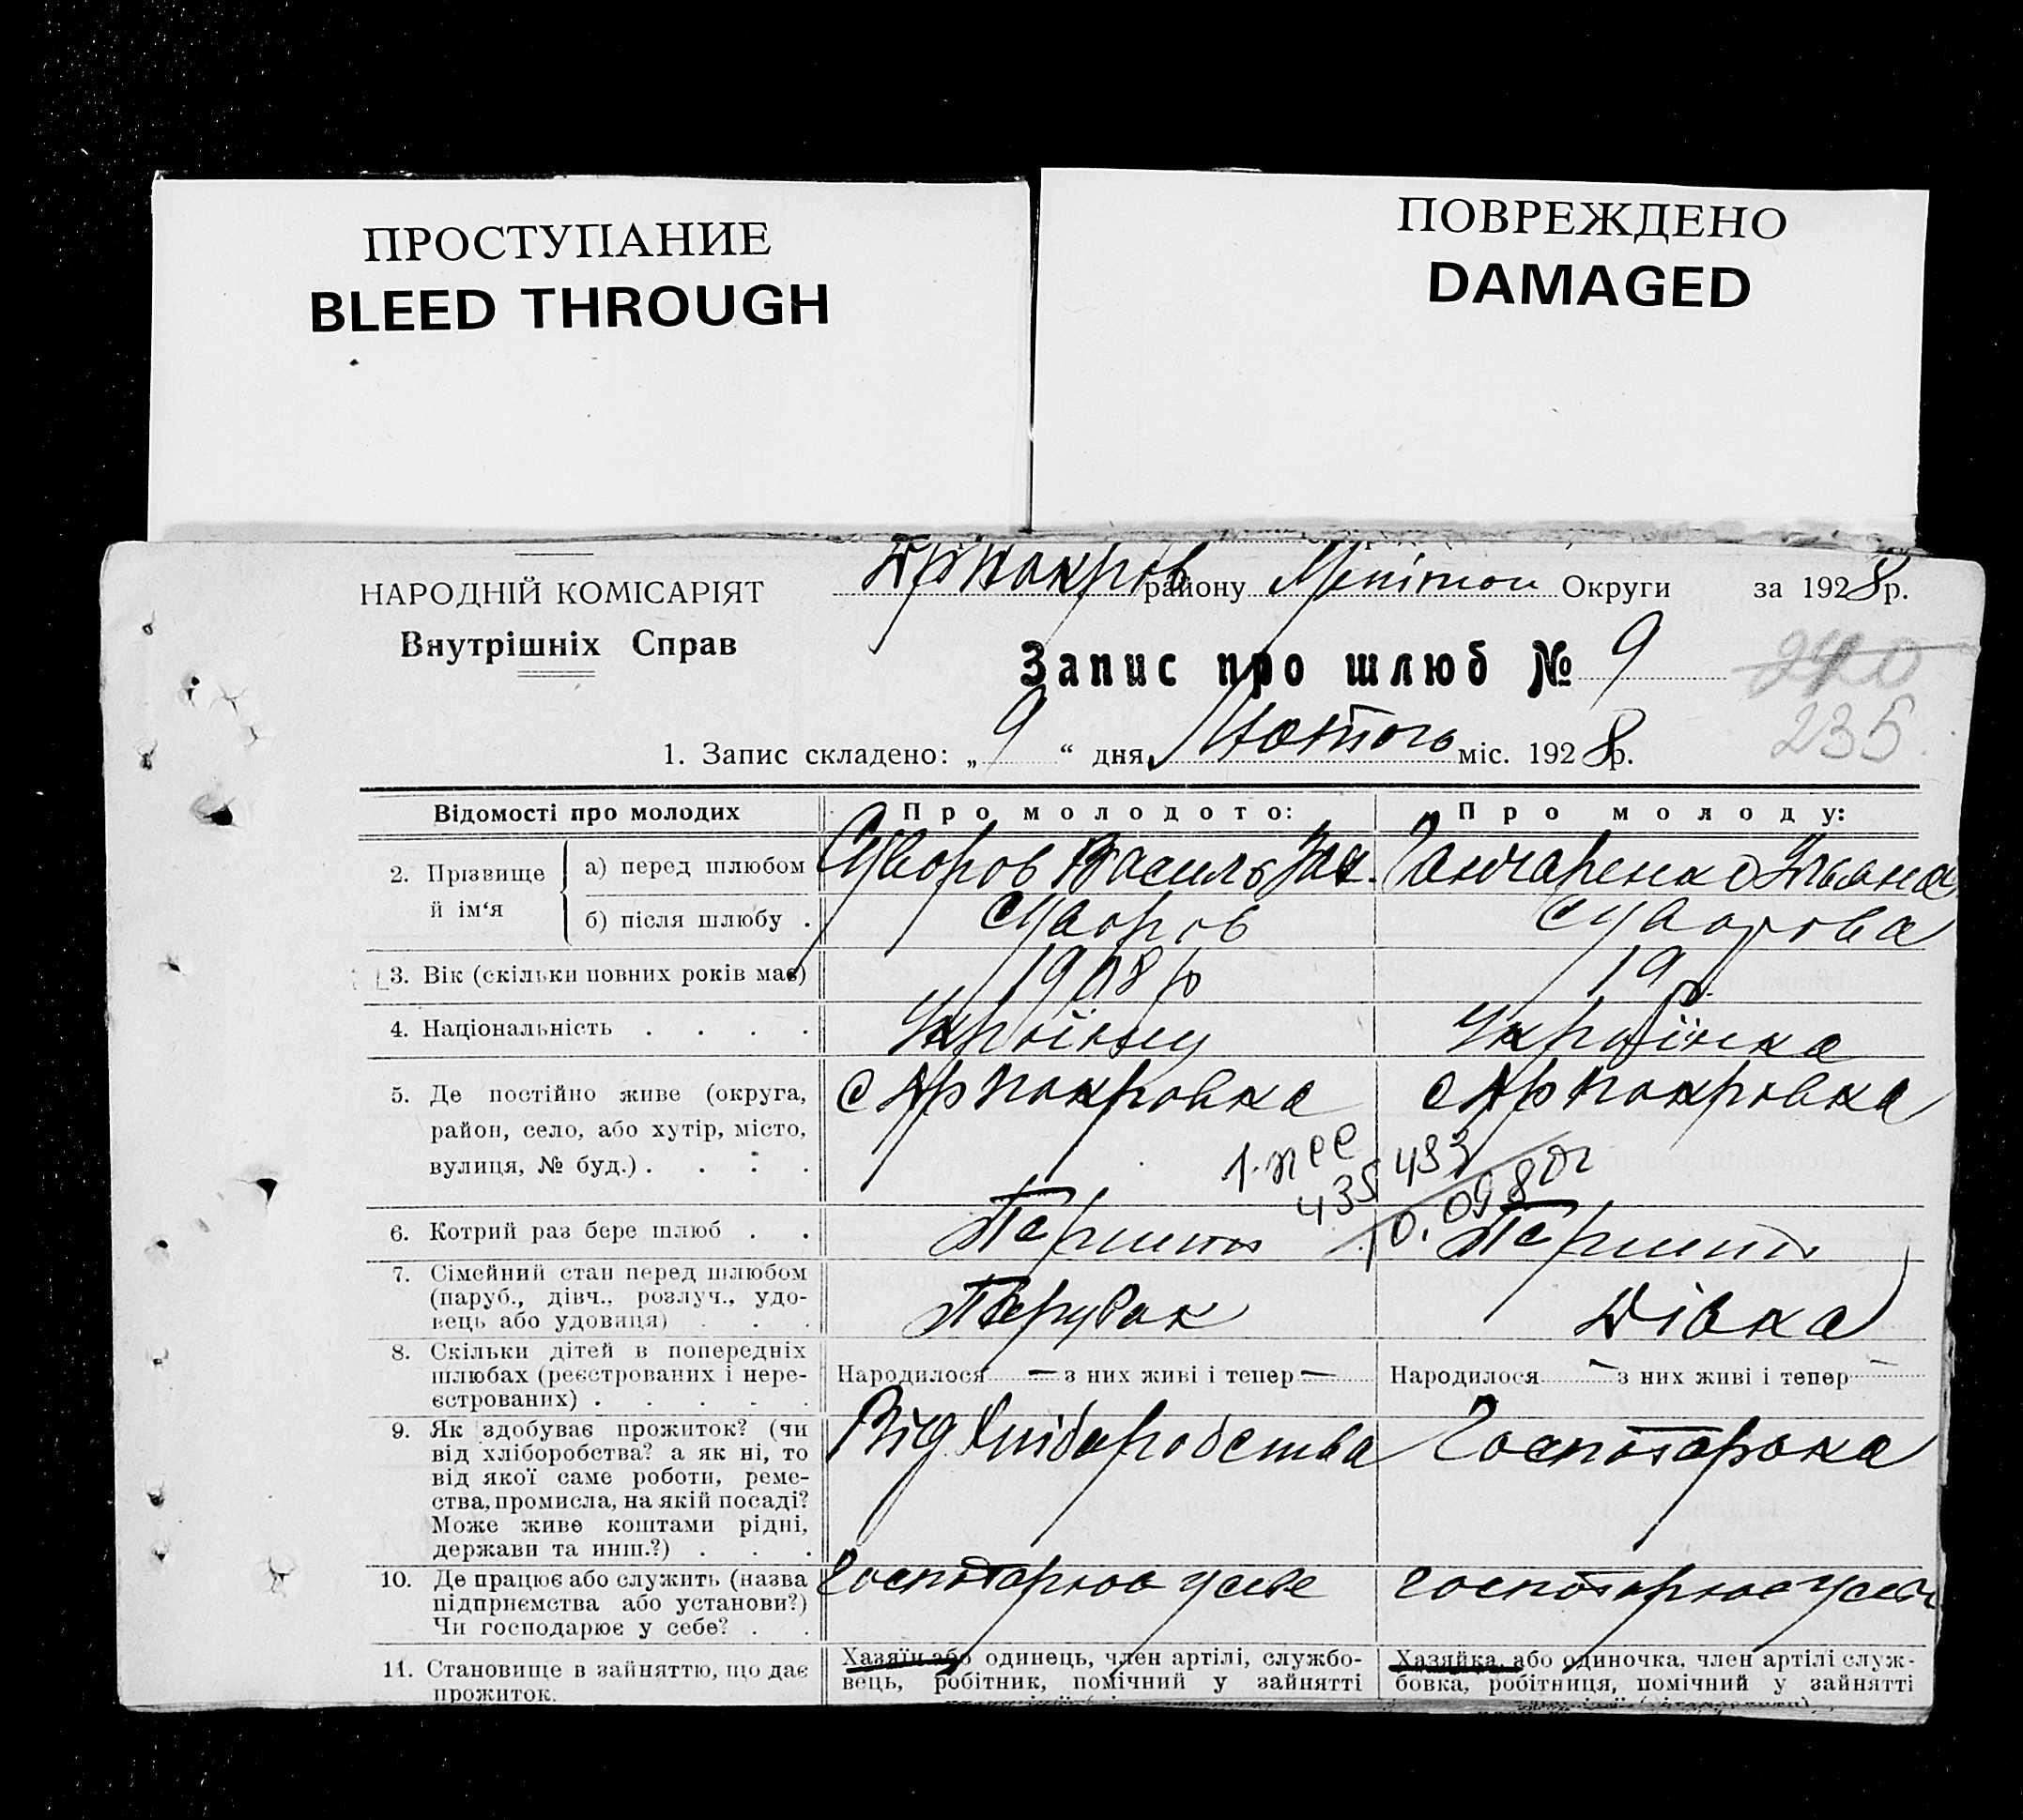 ПРОСТУПАНИЕ
BLEED THROUGH
ПОВРЕЖДЕНО
DAMAGED
НАРОДНІЙ КОМІСАРІЯТ
Внутрішніх Справ
району Мелітоп Округи за 1928р.
Запис про шлюб № 9
240
235
1. Запис складено: „ 9 “ дня Лютого міс. 1928р.
Відомості про молодих
Про молодого:
Про молоду:
2. Прізвище й ім‘я
а) перед шлюбом
Суворов Василь
Ганчаренко Уляна
б) після шлюбу .
Суворов
Суворова
3. Вік (скільки повних років має)
1908 р
19 р.
4. Національність . . . .
Українец
Українка
5. Де постійно живе (округа,
район, село, або хутір, місто,
вулиця, № буд.) . . . .
с Др Покровка
с Др Покровка
435 493
6. Котрий раз бере шлюб . .
Перший
Перший
7. Сімейний стан перед шлюбом
(паруб., дівч., розлуч., удо-
вець або удовиця) . . .
Парубак
Дівка
8. Скільки дітей в попередніх
шлюбах (реєстрованих і нере-
єстрованих) . . . . .
Народилося — з них живі і тепер —
Народилося — з них живі і тепер —
9. Як здобуває прожиток? (чи
від хліборобства? а як ні, то
від якої саме роботи, реме-
ства, промисла, на якій посаді?
Може живе коштами рідні,
держави та инш.?) . . .
Від Хліборобства
Господарока
10. Де працює або служить (назва
підприємства або установи?)
Чи господарює у себе? . .
господарює у себе
господарює у себе
11. Становище в зайняттю, що дає
прожиток.
Хазяїн або одинець, член артілі, службо-
вець, робітник, помічний у зайнятті
Хазяйка, або одиночка, член артілі служ-
бовка, робітниця, помічний у зайнятті